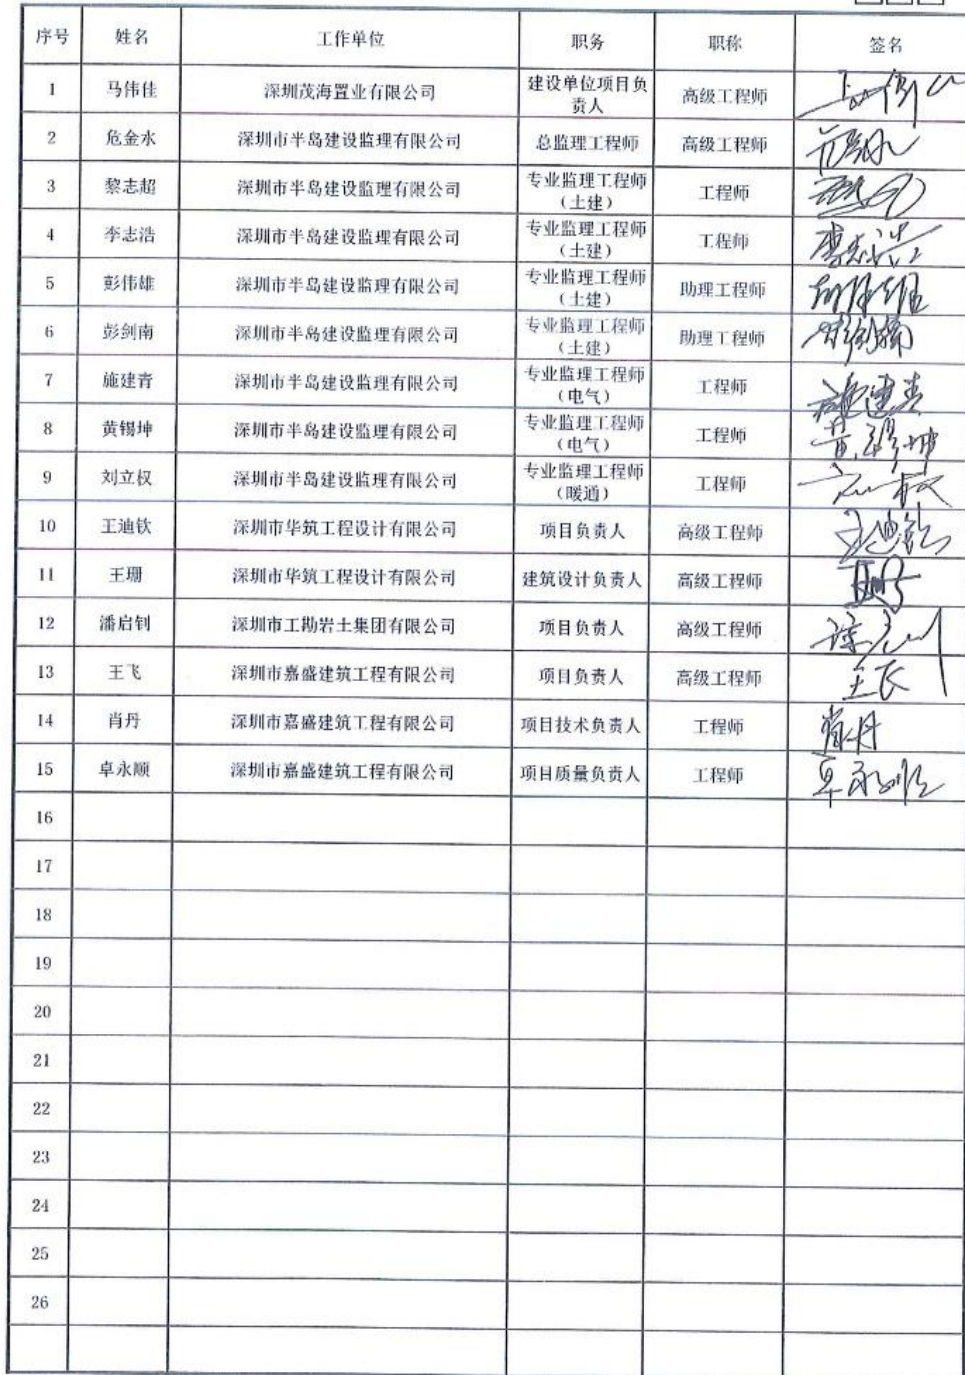 序号 姓名 工作单位 职务 职称 签名
1 马伟佳 深圳茂海置业有限公司 建设单位项目负责人 高级工程师
2 危金水 深圳市半岛建设监理有限公司 总监理工程师 高级工程师
3 黎志超 深圳市半岛建设监理有限公司 专业监理工程师（土建） 工程师
4 李志浩 深圳市半岛建设监理有限公司 专业监理工程师（土建） 工程师 李志浩
5 彭伟雄 深圳市半岛建设监理有限公司 专业监理工程师（土建） 助理工程师 彭伟雄
6 彭剑南 深圳市半岛建设监理有限公司 专业监理工程师（土建） 助理工程师 彭剑南
7 施建青 深圳市半岛建设监理有限公司 专业监理工程师（电气） 工程师 施建青
8 黄锡坤 深圳市半岛建设监理有限公司 专业监理工程师（电气） 工程师 黄锡坤
9 刘立权 深圳市半岛建设监理有限公司 专业监理工程师（暖通） 工程师
10 王迪钦 深圳市华筑工程设计有限公司 项目负责人 高级工程师 王迪钦
11 王珊 深圳市华筑工程设计有限公司 建筑设计负责人 高级工程师 王珊
12 潘启钊 深圳市工勘岩土集团有限公司 项目负责人 高级工程师
13 王飞 深圳市嘉盛建筑工程有限公司 项目负责人 高级工程师 王飞
14 肖丹 深圳市嘉盛建筑工程有限公司 项目技术负责人 工程师 肖丹
15 卓永顺 深圳市嘉盛建筑工程有限公司 项目质量负责人 工程师 卓永顺
16
17
18
19
20
21
22
23
24
25
26